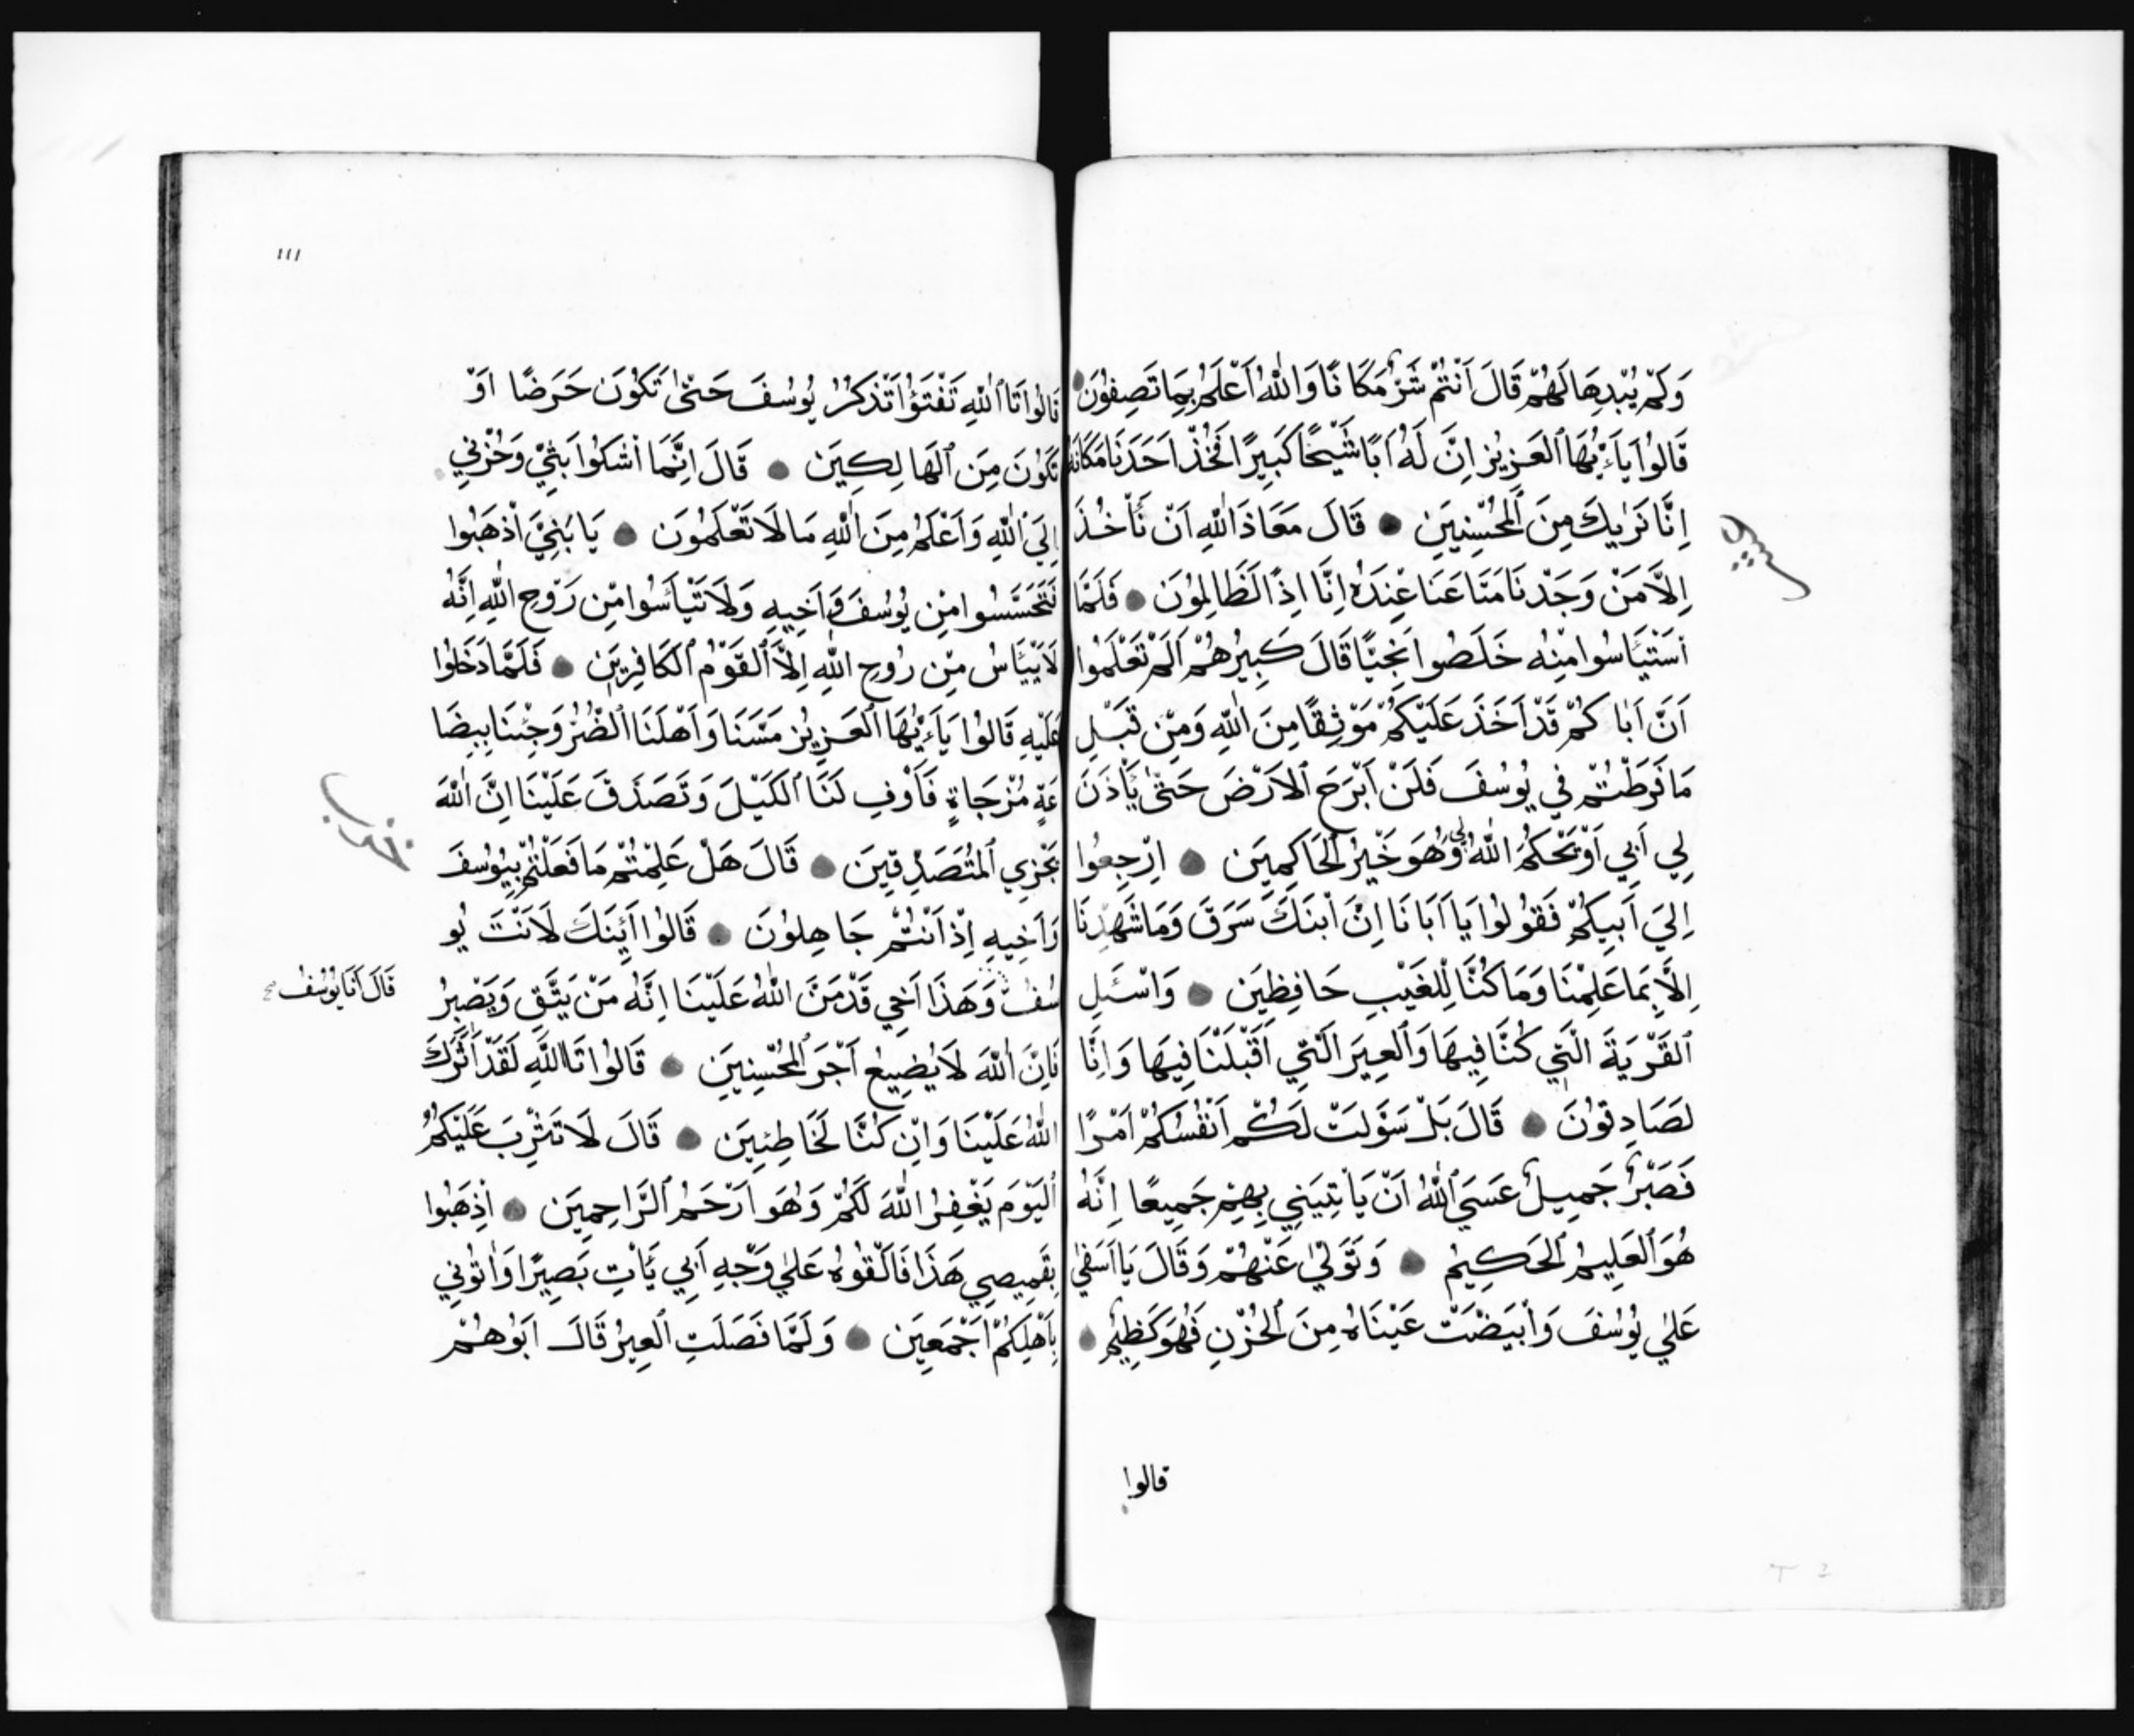 وَلَمْ يُبْدِهَا لَهُمْ قَالَ اَنْتُمْ شَرٌّ مَكَانًا وَاللّٰهُ اَعْلَمُ بِمَا تَصِفُونَ
قَالُوا يَآ ءَيُّهَا ٱلْعَزِيزُ اِنَّ لَهُ اَبًا شَيْخًا كَبِيرًا فَخُذْ اَحَدَنَا مَكَانَهُ
اِنَّا نَرٰيكَ مِنَ ٱلْمُحْسِنِينَ ۝ قَالَ مَعَاذَ اللّٰهِ اَنْ نَأْخُذَ
اِلَّا مَنْ وَجَدْنَا مَتَاعَنَا عِنْدَهُ اِنَّا اِذًا لَظَالِمُونَ ۝ فَلَمَّا
ٱسْتَيْـَٔاسُوا مِنْهُ خَلَصُوا نَجِيًّا قَالَ كَبِيرُهُمْ اَلَمْ تَعْلَمُوا
اَنَّ اَبَاكُمْ قَدْ اَخَذَ عَلَيْكُمْ مَوْثِقًا مِنَ اللّٰهِ وَمِنْ قَبْلِ
مَا فَرَطْتُمْ فِي يُوسُفَ فَلَنْ اَبْرَحَ ٱلاَرْضَ حَتّٰى يَأْذَنَ
لِي اَبِي اَوْ يَحْكُمَ اللّٰهُ لِي وَهُوَ خَيْرُ ٱلْحَاكِمِينَ ۝ اِرْجِعُوا
اِلَيَ اَبِيكُمْ فَقُولُوا يَا اَبَانَا اِنَّ ٱبْنَكَ سَرَقَ وَمَا شَهِدْنَا
اِلَّا بِمَا عَلِمْنَا وَمَا كُنَّا لِلْغَيْبِ حَافِظِينَ ۝ وَاسْـَٔلِ
ٱلْقَرْيَةَ الَّتِي كُنَّا فِيهَا وَٱلْعِيرَ الَّتِي اَقْبَلْنَا فِيهَا وَاِنَّا
لَصَادِقُونَ ۝ قَالَ بَلْ سَوَّلَتْ لَكُمْ اَنْفُسُكُمْ اَمْرًا
فَصَبْرٌ جَمِيلٌ عَسَيَ ٱللّٰهُ اَنْ يَأْتِيَنِي بِهِمْ جَمِيعًا اِنَّهُ
هُوَ ٱلْعَلِيمُ ٱلْحَكِيمُ ۝ وَتَوَلّٰيٰ عَنْهُمْ وَقَالَ يَا اَسَفٰي
عَلٰي يُوسُفَ وَٱبْيَضَّتْ عَيْنَاهُ مِنَ ٱلْحُزْنِ فَهُوَ كَظِيمٌ ۝
قالوا
١١١
قَالُوا تَا ٱللّٰهِ تَفْتَؤُا تَذْكُرُ يُوسُفَ حَتّٰى تَكُونَ حَرَضًا اَوْ
تَكُونَ مِنَ ٱلْهَالِكِينَ ۝ قَالَ اِنَّمَا اَشْكُوا بَثِّي وَحُزْنِي
اِلَيَ ٱللّٰهِ وَاَعْلَمُ مِنَ اللّٰهِ مَا لَا تَعْلَمُونَ ۝ يَا بَنِيَّ ٱذْهَبُوا
فَتَحَسَّسُوا مِنْ يُوسُفَ وَاَخِيهِ وَلَا تَيْأَسُوا مِنْ رَوْحِ اللّٰهِ اِنَّهُ
لَا يَيْـَٔاسُ مِنْ رُوحِ اللّٰهِ اِلَّا ٱلْقَوْمُ ٱلْكَافِرِينَ ۝ فَلَمَّا دَخَلُوا
عَلَيْهِ قَالُوا يَآ ءَيُّهَا ٱلْعَزِيزُ مَسَّنَا وَاَهْلَنَا ٱلضُّرُّ وَجِئْنَا بِبِضَا
عَةٍ مُزْجَاةٍ فَاَوْفِ لَنَا ٱلْكَيْلَ وَتَصَدَّقَ عَلَيْنَا اِنَّ اللّٰهَ
يَجْزِي ٱلْمُتَصَدِّقِينَ ۝ قَالَ هَلْ عَلِمْتُمْ مَا فَعَلْتُمْ بِيُوسُفَ
وَاَخِيهِ اِذْ اَنْتُمْ جَاهِلُونَ ۝ قَالُوا اَئِنَّكَ لَاَنْتَ يُو
سُفُ وَهَذَا اَخِي قَدْ مَنَّ اللّٰهُ عَلَيْنَا اِنَّهُ مَنْ يَتَّقِ وَيَصْبِرُ
قَالَ اَنَا يُوسُفُ صح
فَاِنَّ اللّٰهَ لَا يُضِيعُ اَجْرَ ٱلْمُحْسِنِينَ ۝ قَالُوا تَا اللّٰهِ لَقَدْ اٰثَرَكَ
اللّٰهُ عَلَيْنَا وَاِنْ كُنَّا لَخَاطِئِينَ ۝ قَالَ لَا تَثْرِبَ عَلَيْكُمُ
ٱلْيَوْمَ يَغْفِرُ اللّٰهَ لَكُمْ وَهُوَ اَرْحَمُ ٱلرَّاحِمِينَ ۝ اِذْهَبُوا
بِقَمِيصِي هَذَا فَاَلْقُوهُ عَلٰي وَجْهِ اَبِي يَأْتِ بَصِيرًا وَاْتُونِي
بِاَهْلِكُمْ اَجْمَعِينَ ۝ وَلَمَّا فَصَلَتِ ٱلْعِيرُ قَالَ اَبُوهُمْ